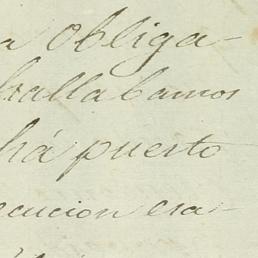 a obliga-
hallabamos
há puesto
ecucion era-